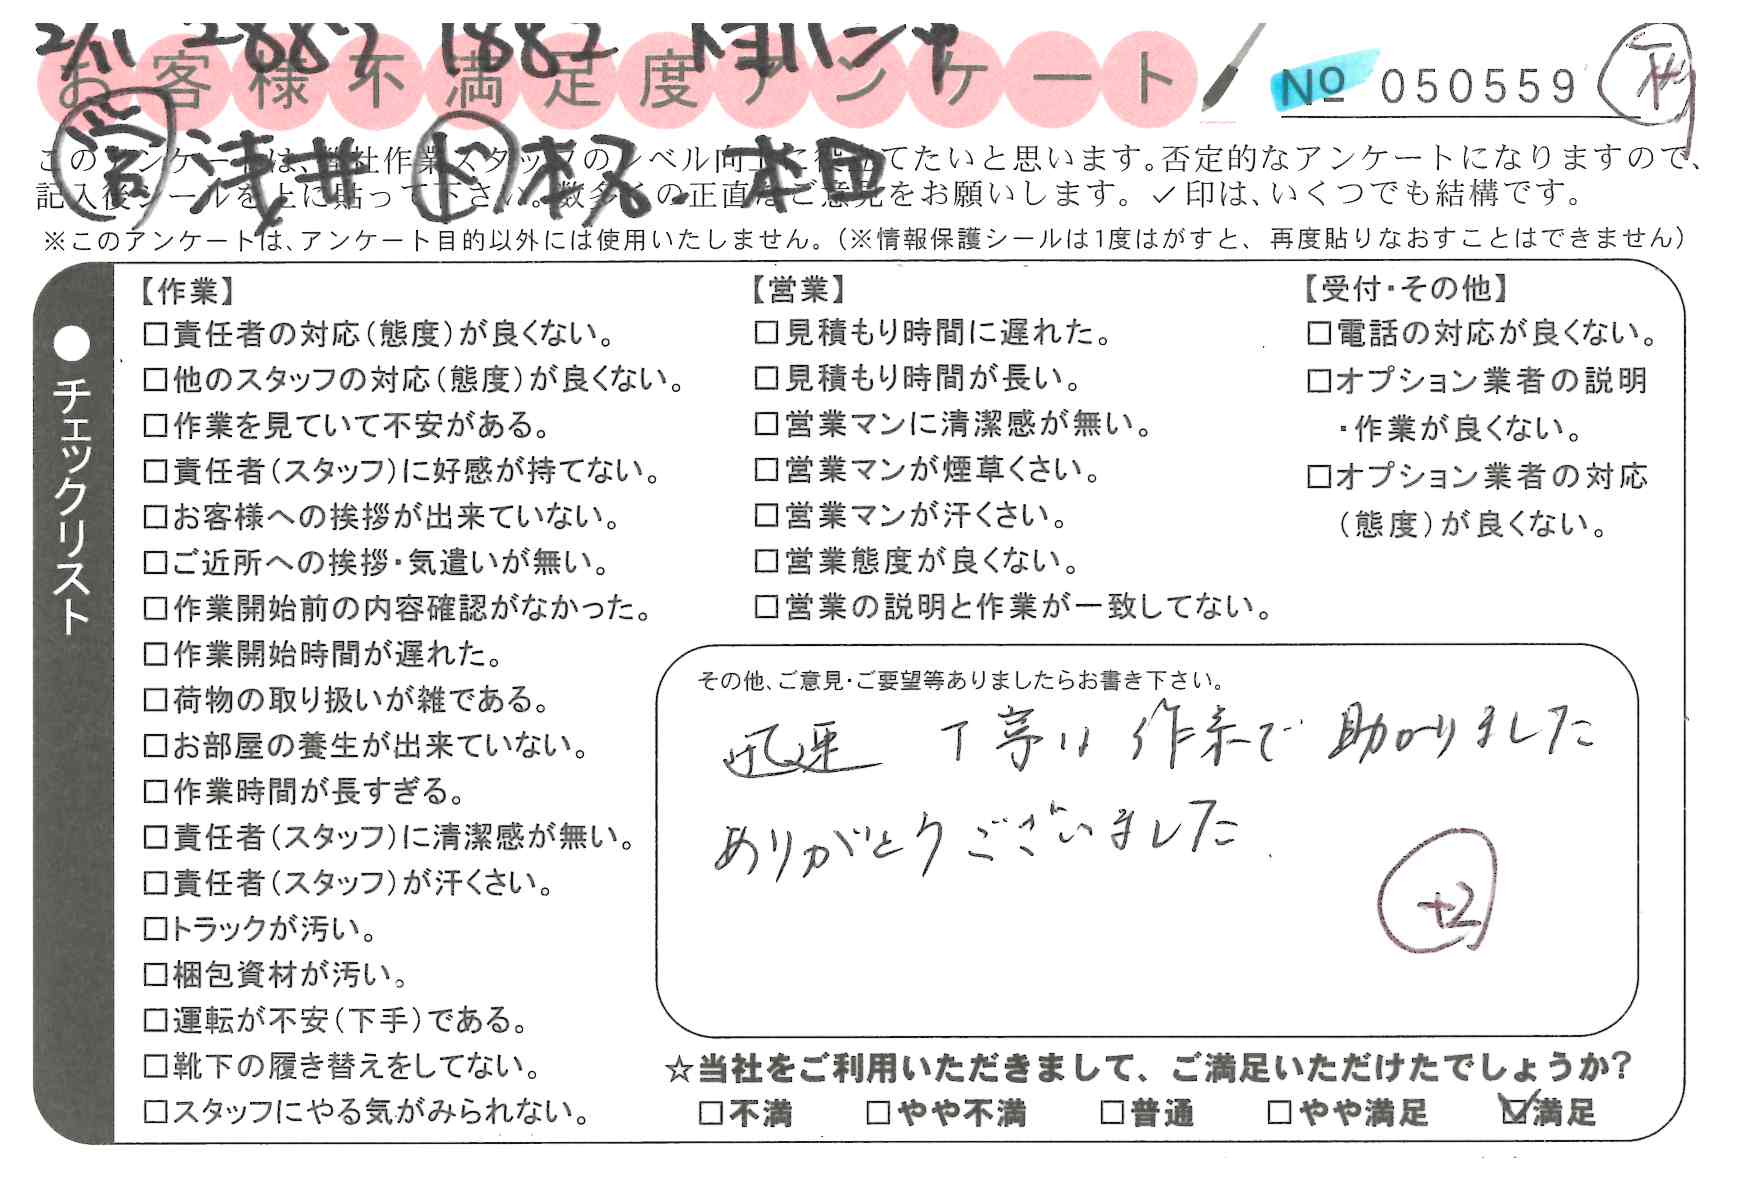 2/11
お客様不満足度アンケート
№ 050559
浅井 本田
このアンケートは、弊社作業スタッフのレベル向上に役立てたいと思います。否定的なアンケートになりますので、
記入後シールを上に貼って下さい。数多くの正直なご意見をお願いします。✓印は、いくつでも結構です。
※このアンケートは、アンケート目的以外には使用いたしません。（※情報保護シールは1度はがすと、再度貼りなおすことはできません）
●チェックリスト
【作業】
□責任者の対応（態度）が良くない。
□他のスタッフの対応（態度）が良くない。
□作業を見ていて不安がある。
□責任者（スタッフ）に好感が持てない。
□お客様への挨拶が出来ていない。
□ご近所への挨拶・気遣いが無い。
□作業開始前の内容確認がなかった。
□作業開始時間が遅れた。
□荷物の取り扱いが雑である。
□お部屋の養生が出来ていない。
□作業時間が長すぎる。
□責任者（スタッフ）に清潔感が無い。
□責任者（スタッフ）が汗くさい。
□トラックが汚い。
□梱包資材が汚い。
□運転が不安（下手）である。
□靴下の履き替えをしてない。
□スタッフにやる気がみられない。
【営業】
□見積もり時間に遅れた。
□見積もり時間が長い。
□営業マンに清潔感が無い。
□営業マンが煙草くさい。
□営業マンが汗くさい。
□営業態度が良くない。
□営業の説明と作業が一致してない。
【受付・その他】
□電話の対応が良くない。
□オプション業者の説明
・作業が良くない。
□オプション業者の対応
（態度）が良くない。
その他、ご意見・ご要望等ありましたらお書き下さい。
迅速 丁寧な作業で助かりました
ありがとうございました
+2
☆当社をご利用いただきまして、ご満足いただけたでしょうか？
□不満 □やや不満 □普通 □やや満足 ☑満足